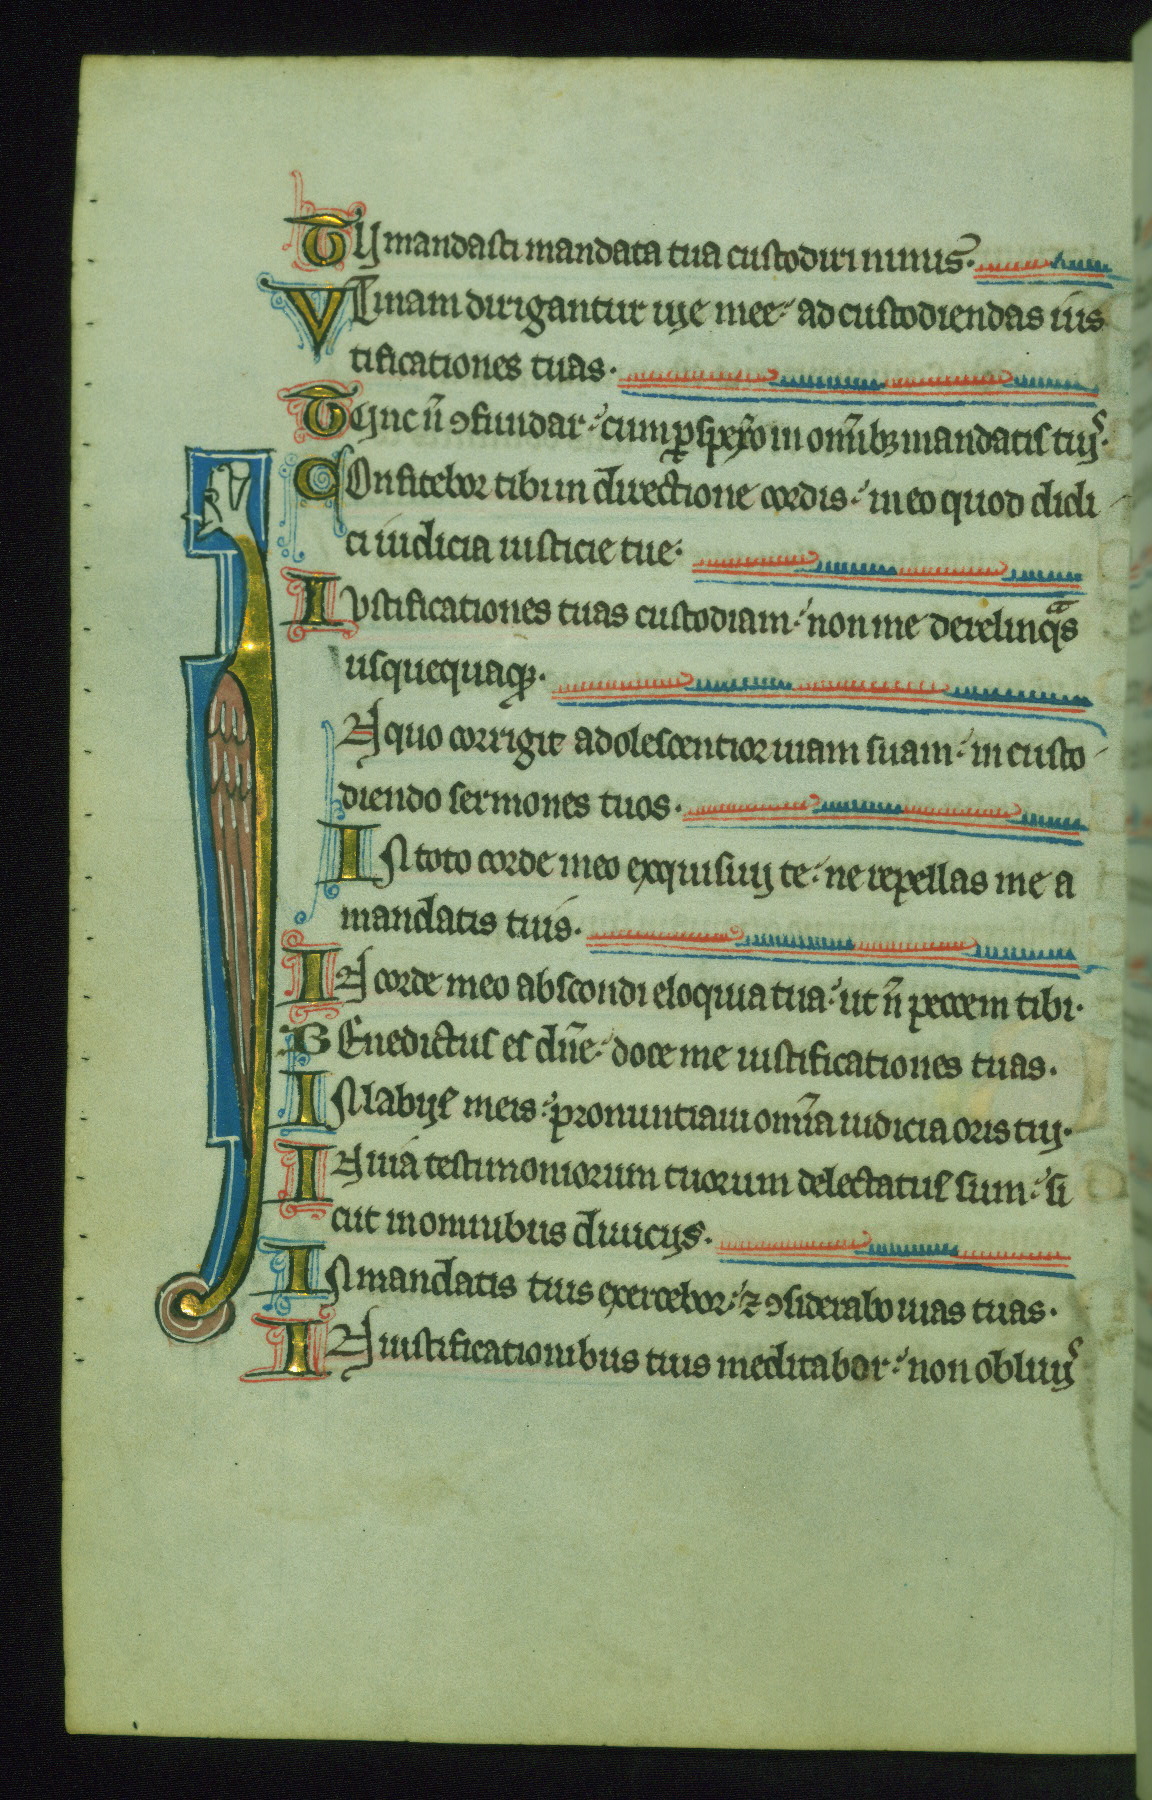 Tu mandasti mandata tua custodiri nimis.
Utinam dirigantur uye mee: ad custodiendas ius
tificationes tuas.
Tunc ñ ɔfundar: cum ꝑspexero in om̃ibꝫ mandatis tuis.
Confitebor tibi in directione cordis: in eo quod didi
ci iudicia iusticie tue.
Iustificationes tuas custodiam: non me derelinqͣs
usquequaqꝫ.
In quo corrigit adolescentior uiam suam: in custo
diendo sermones tuos.
In toto corde meo exquisiuy te: ne repellas me a
mandatis tuis.
In corde meo abscondi eloquia tua: ut ñ peccem tibi.
Benedictus es dñe: doce me iustificationes tuas.
In labijs meis: pronuntiaui om̃ia iudicia oris tuy.
In uia testimoniorum tuorum delectatus sum: si
cut in omnibus diuicijs.
In mandatis tuis exercebor: ⁊ ɔsiderabo uias tuas.
In iustificationibus tuis meditabor: non obliuiͥ